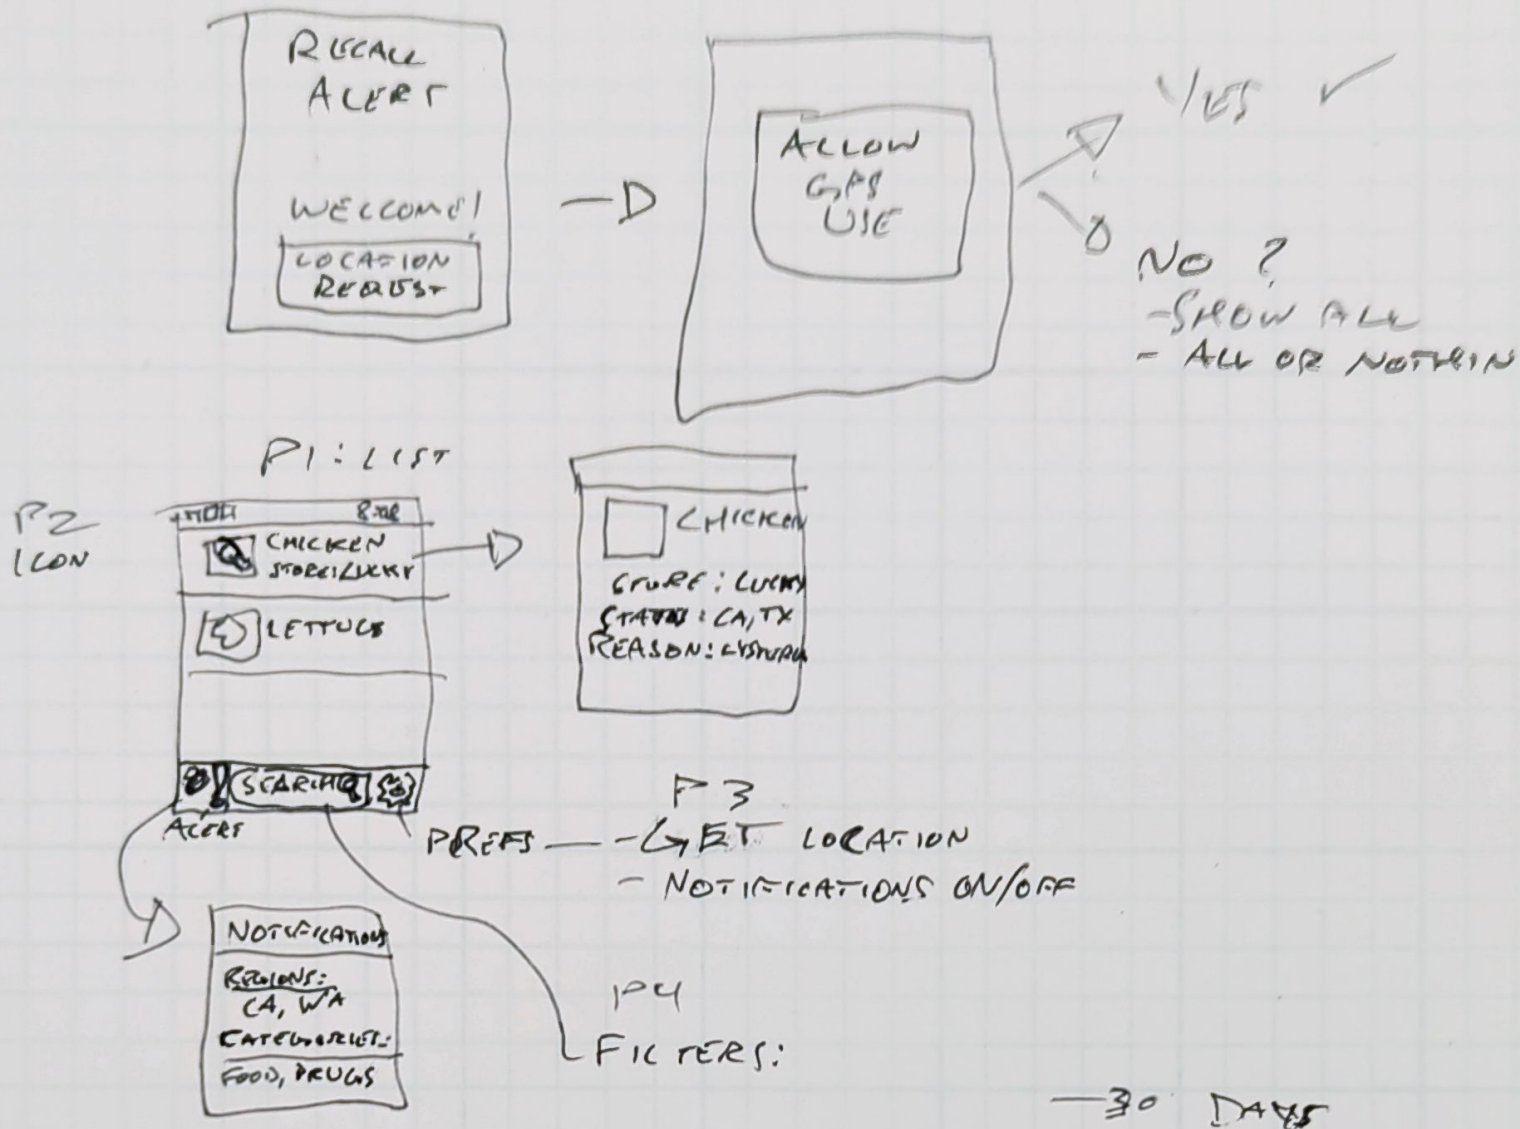 RECALL
ALERT
WELCOME!
LOCATION
REQUEST
ALLOW
GPS
USE
YES ✓
NO ?
- SHOW ALL
- ALL OR NOTHIN
P1: LIST
P2
ICON
CHICKEN
STORE: LUCKY
LETTUCE
SEARCH
ALERT
CHICKEN
STORE: LUCKY
STATES: CA, TX
REASON:
P3
PREFS — - GET LOCATION
- NOTIFICATIONS ON/OFF
NOTIFICATIONS
REGIONS:
CA, WA
CATEGORIES:
FOOD, DRUGS
P4
FILTERS:
— 30 DAYS